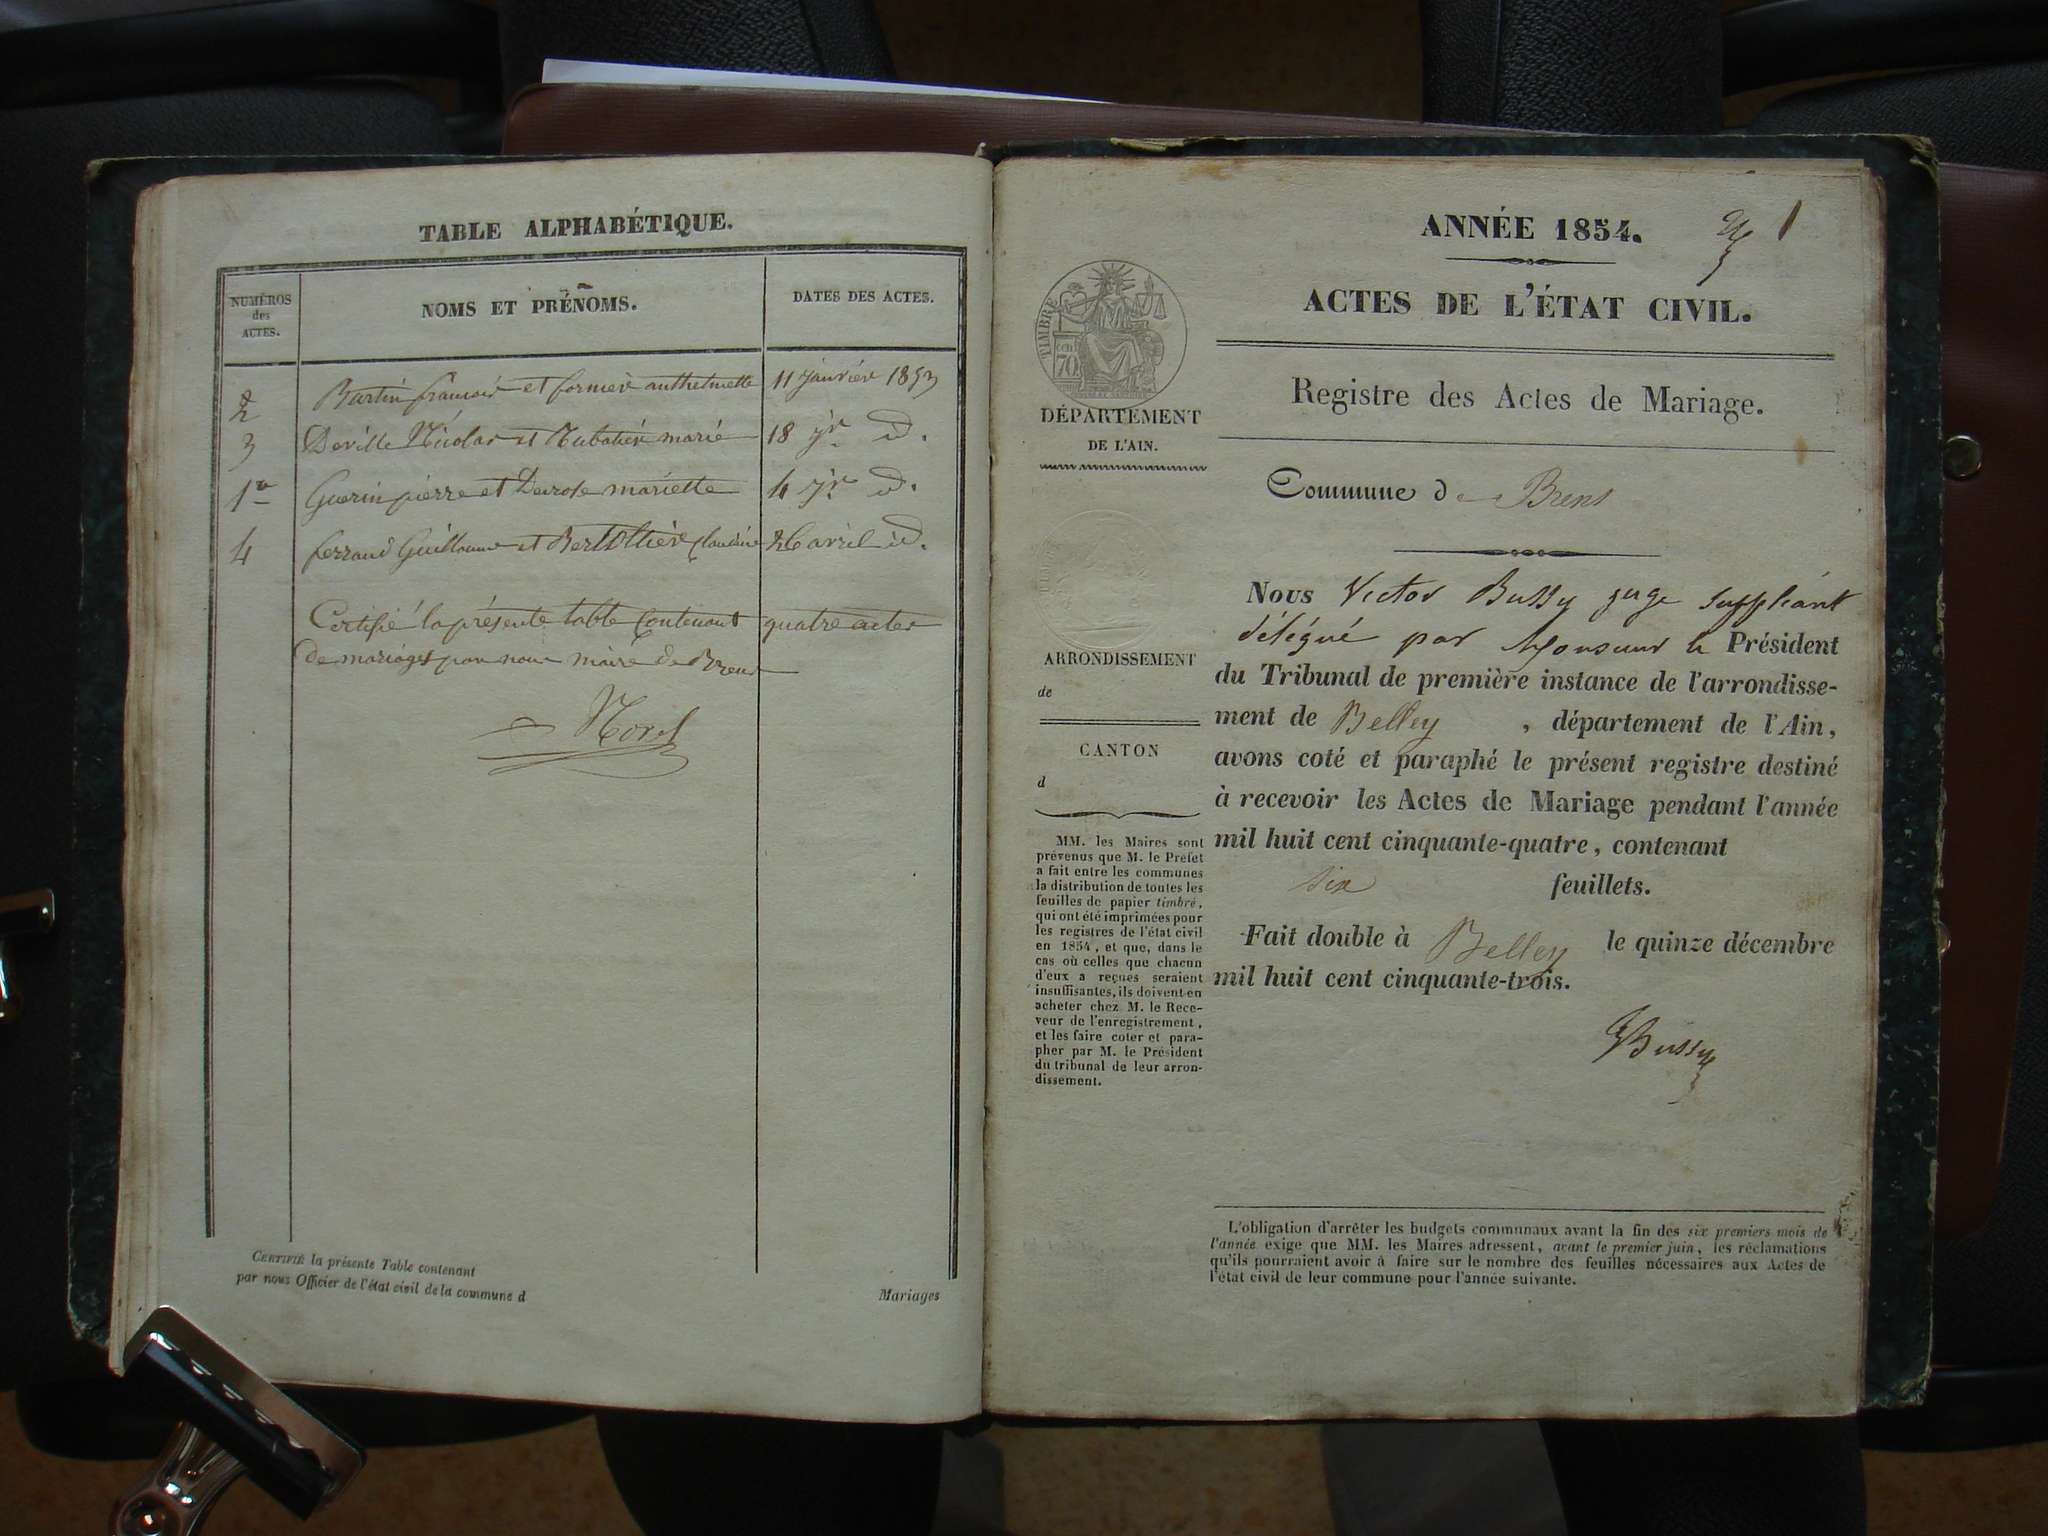 TABLE ALPHABÉTIQUE.
NUMÉROS
des
ACTES.
NOMS ET PRÉNOMS.
DATES DES ACTES.
2 Bartin françois et formier anthelmette 11 janvier 1853
3 Deville Nicolas et marie 18 jr id.
1er Guerin pierre et Devrose mariette 4 jr id.
4 ferrand Guillaume et Berthollier Claudine 26 avril id.
Certifié la présente table Contenant quatre actes
de mariages par nous maire de Brens
Morel
CERTIFIÉ la présente Table contenant
par nous Officier de l'état civil de la commune d
Mariages
ANNÉE 1854.
1
ACTES DE L'ÉTAT CIVIL.
Registre des Actes de Mariage.
TIMBRE
cent
70
DÉPARTEMENT
DE L'AIN.
Commune de Brens
Nous Victor Bussy juge suppléant
délégué par Monsieur le Président
du Tribunal de première instance de l'arrondisse-
ment de Belley , département de l'Ain,
avons coté et paraphé le présent registre destiné
à recevoir les Actes de Mariage pendant l'année
mil huit cent cinquante-quatre, contenant
six feuillets.
Fait double à Belley le quinze décembre
mil huit cent cinquante-trois.
Bussy
ARRONDISSEMENT
de
CANTON
d
MM. les Maires sont
prévenus que M. le Préfet
a fait entre les communes
la distribution de toutes les
feuilles de papier timbré,
qui ont été imprimées pour
les registres de l'état civil
en 1854, et que, dans le
cas où celles que chacun
d'eux a reçues seraient
insuffisantes, ils doivent en
acheter chez M. le Rece-
veur de l'enregistrement,
et les faire coter et para-
pher par M. le Président
du tribunal de leur arron-
dissement.
L'obligation d'arrêter les budgets communaux avant la fin des six premiers mois de
l'année exige que MM. les Maires adressent, avant le premier juin, les réclamations
qu'ils pourraient avoir à faire sur le nombre des feuilles nécessaires aux Actes de
l'état civil de leur commune pour l'année suivante.